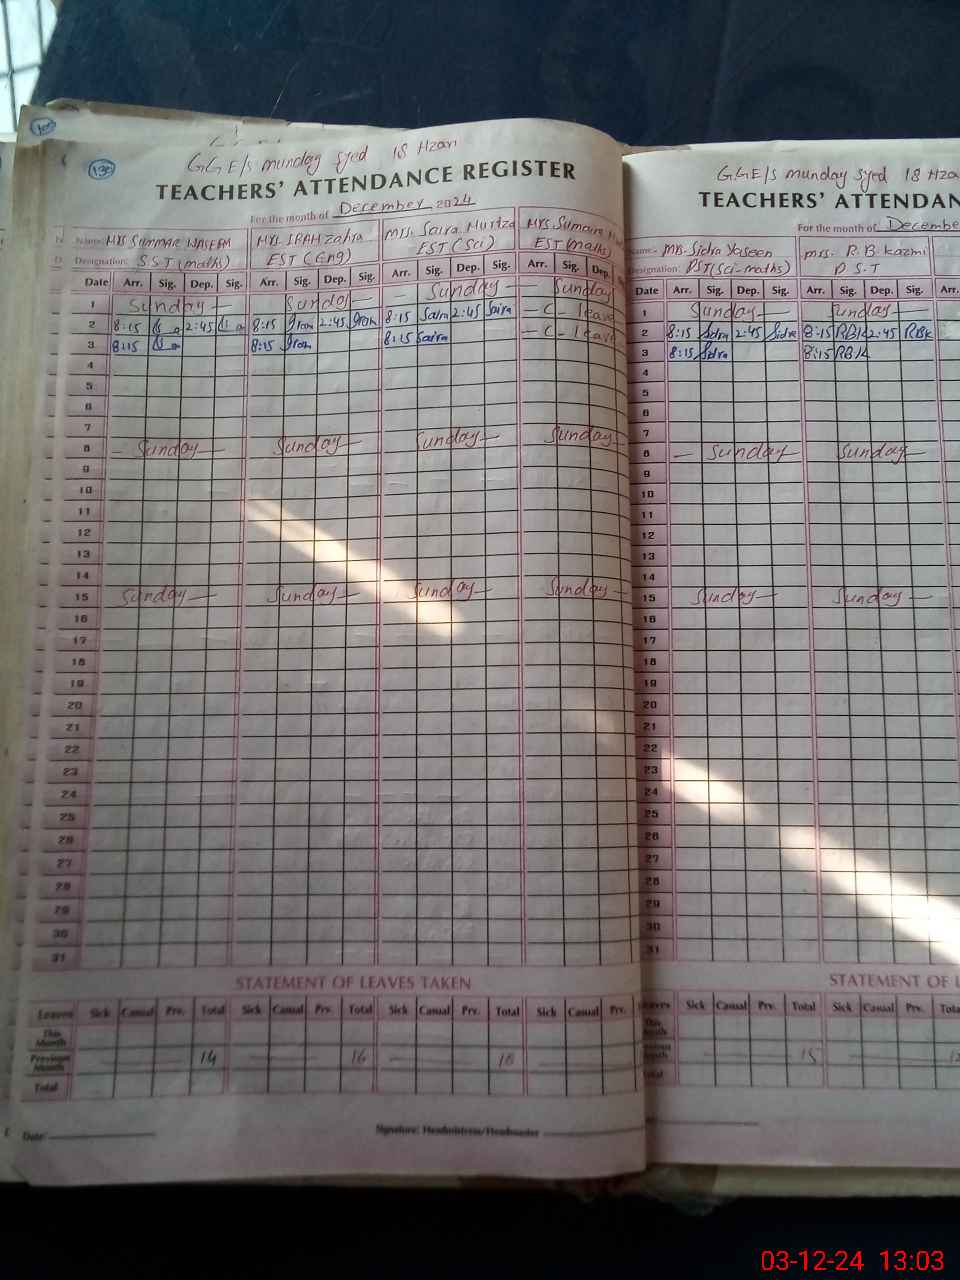 130
GGE/S munday syed 18 Hzari
TEACHERS' ATTENDANCE REGISTER
For the month of December 2024
Name: Mrs Summar Waseem Mrs. IRAM Zahra Mrs. Saira Murtza Mrs. Sumaira
Designation: SST (maths) EST (Eng) EST (Sci) EST (maths)
Date Arr. Sig. Dep. Sig. Arr. Sig. Dep. Sig. Arr. Sig. Dep. Sig. Arr. Sig. Dep.
1 Sunday Sunday Sunday Sunday
2 8:15 2:45 8:15 Iram 2:45 Iram 8:15 Saira 2:45 Saira - C - leave
3 8:15 8:15 Iram 8:15 Saira - C - leave
4
5
6
7
8 Sunday Sunday Sunday Sunday
9
10
11
12
13
14
15 Sunday Sunday Sunday Sunday
16
17
18
19
20
21
22
23
24
25
26
27
28
29
30
31
STATEMENT OF LEAVES TAKEN
Leaves Sick Casual Prv. Total Sick Casual Prv. Total Sick Casual Prv. Total Sick Casual Prv.
This Month
Previous Month 14 16 18
Total
Date: Signature: Headmistress/Headmaster
GGE/S munday syed 18 Hza
TEACHERS' ATTENDAN
For the month of Decembe
Name: Mrs. Sidra Yaseen Mrs. R.B kazmi
Designation: PST (Sci-maths) P S T
Date Arr. Sig. Dep. Sig. Arr. Sig. Dep. Sig.
1 Sunday Sunday
2 8:15 Sidra 2:45 Sidra 8:15 RBK 2:45 RBK
3 8:15 Sidra 8:15 RBK
4
5
6
7
8 Sunday Sunday
9
10
11
12
13
14
15 Sunday Sunday
16
17
18
19
20
21
22
23
24
25
26
27
28
29
30
31
STATEMENT OF L
Leaves Sick Casual Prv. Total Sick Casual Prv. Tota
This Month
Month 15
Total
03-12-24 13:03